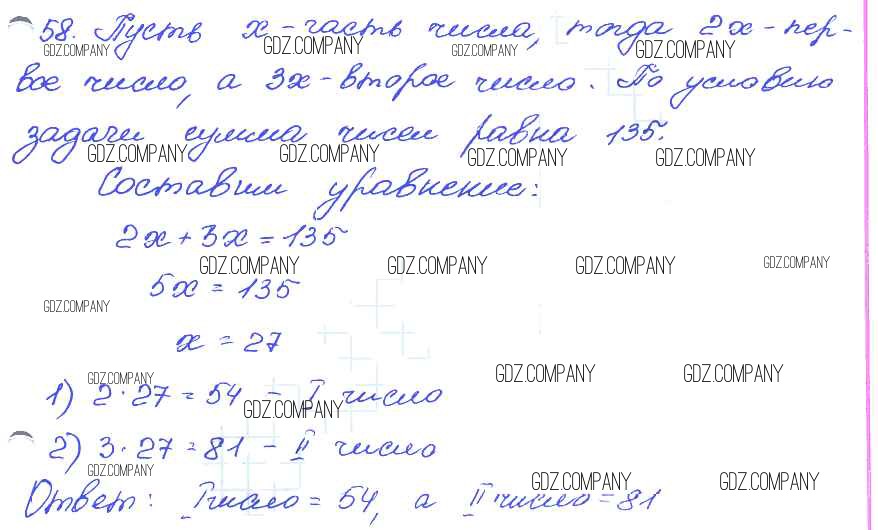 58. Пусть x - часть числа, тогда 2x - пер-
GDZ.COMPANY GDZ.COMPANY GDZ.COMPANY GDZ.COMPANY
вое число, а 3x - второе число. По условию
задачи сумма чисел равна 135.
GDZ.COMPANY GDZ.COMPANY GDZ.COMPANY GDZ.COMPANY
Составим уравнение:
2x + 3x = 135
GDZ.COMPANY GDZ.COMPANY GDZ.COMPANY GDZ.COMPANY
5x = 135
GDZ.COMPANY
x = 27
GDZ.COMPANY GDZ.COMPANY GDZ.COMPANY
1) 2 · 27 = 54 - I число
GDZ.COMPANY
2) 3 · 27 = 81 - II число
GDZ.COMPANY GDZ.COMPANY GDZ.COMPANY
Ответ: I число = 54, а II число = 81